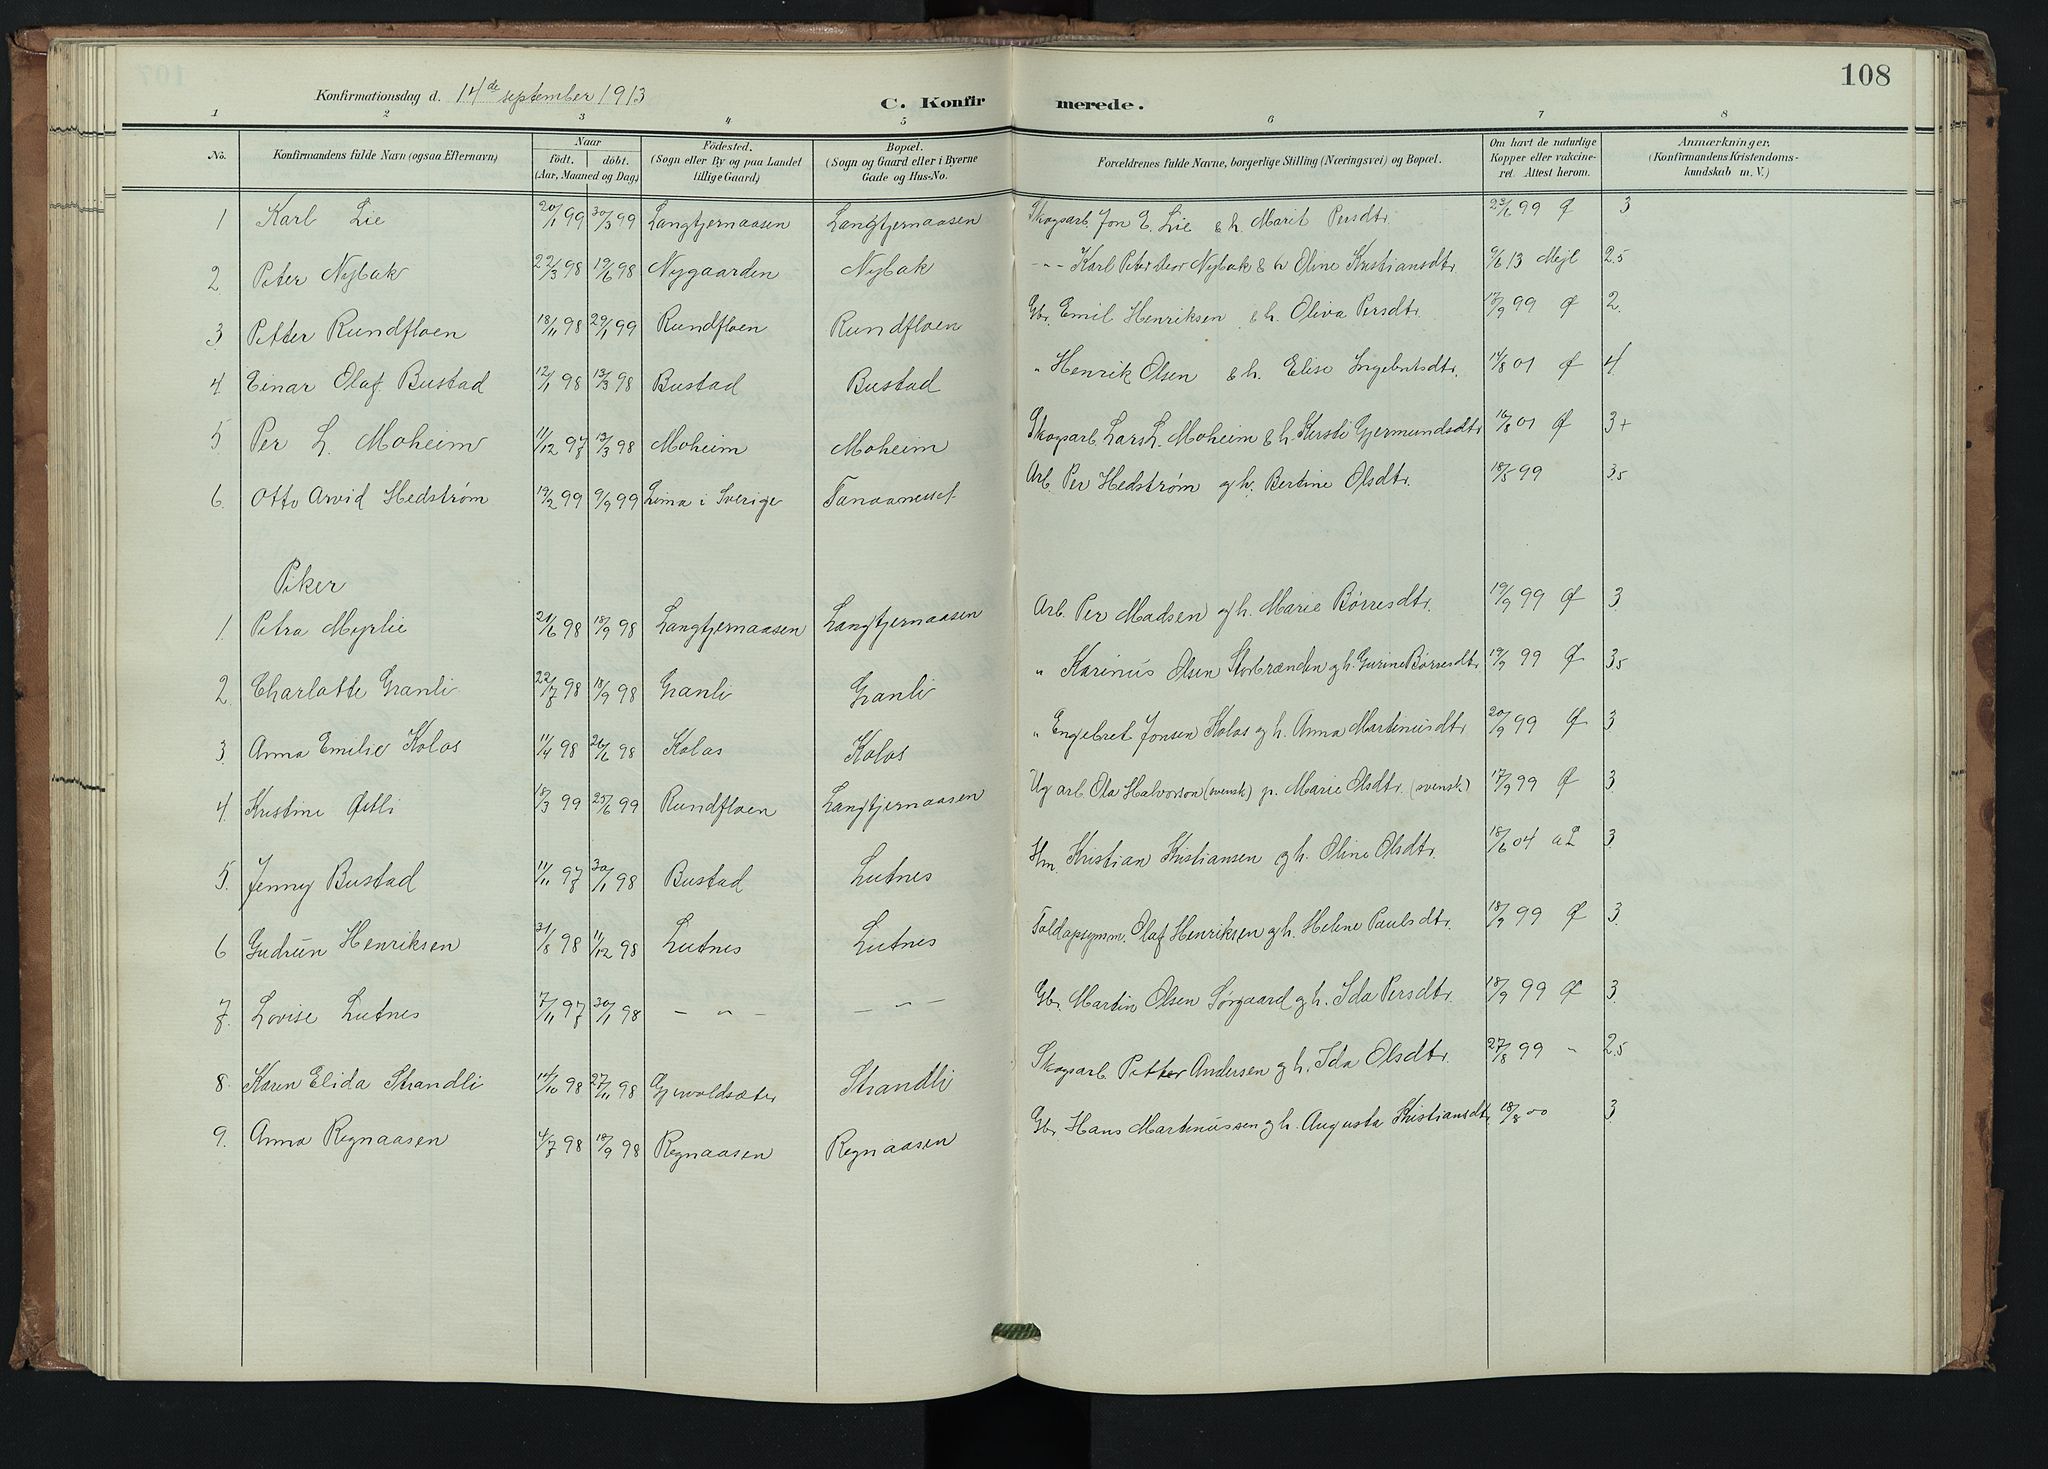 108
Konfirmationsdag d. 14de september 1913
C. Konfirmerede.
1 2 3 4 5 6 7 8
No. Konfirmandens fulde Navn (ogsaa Efternavn) Naar født. døbt. (Aar, Maaned og Dag) Fødested. (Sogn eller By og paa Landet tillige Gaard) Bopæl. (Sogn og Gaard eller i Byerne Gade og Hus-No. Forældrenes fulde Navne, borgerlige Stilling (Næringsvei) og Bopæl. Om havt de naturlige Kopper eller vakcineret. Attest herom. Anmærkninger. (Konfirmandens Kristendomskundskab m. V.)
1 Karl Lie 20/1 99 30/3 99 Langtjernaasen Langtjernaasen Skogsarb. Jon E. Lie & h. Marit Persdtr. 23/6 99 Ø 3
2. Peter Nybak 22/3 98 19/6 98 Nygaarden Nybak - " - Karl Peter Nybak & h Oline Kristiansdtr. 9/6 13 Mejl 2.5
3 Petter Rundfloen 18/11 98 29/1 99 Rundfloen Rundfloen Gbr. Emil Henriksen & h. Oliva Persdtr. 17/9 99 Ø 2.
4 Einar Olaf Bustad 12/1 98 13/3 98 Bustad Bustad " Henrik Olsen & h. Elise Ingebretsdtr. 14/8 01 Ø 4
5 Per L. Moheim 11/12 97 13/3 98 Moheim Moheim Skogsarb. Lars L. Moheim & h. Kersti Gjermundsdtr 16/8 01 Ø 3+
6. Otto Arvid Hedstrøm 19/2 99 9/9 99 Lima i Sverige Arb. Per Hedstrøm og h. Bertine Olsdtr. 18/5 99 3.5
Piker
1. Petra Myrlie 21/6 98 18/9 98 Langtjernaasen Langtjernaasen Arb. Per Madsen og h. Marie Børresdtr. 19/9 99 Ø 3
2. Charlotte Granli 22/7 98 18/9 98 Granli Granli " Karinus Olsen Storbrænden og h. Gurine Børresdtr. 19/9 99 Ø 3.5
3. Anna Emilie Kolos 11/4 98 26/6 98 Kolos Kolos " Engebret Jonsen Kolos og h. Anna Martinusdtr. 20/9 99 Ø 3
4. Kristine Østli 18/3 99 25/6 99 Rundfloen Langtjernaasen Ug arb. Ola Halvorson (svensk) p. Marie Olsdtr. (svensk) 17/9 99 Ø 3.
5. Jenny Bustad 11/11 97 30/1 98 Bustad Lutnes Hm. Kristian Kristiansen og h. Oline Olsdtr. 18/6 04 3.
6 Gudrun Henriksen 31/8 98 11/12 98 Lutnes Lutnes Toldopsynsm. Olaf Henriksen og h. Helene Paulsdtr. 18/9 99 Ø 3.
7. Lovise Lutnes 7/11 97 30/1 98 - " - - " - Gbr. Martin Olsen Sørgaard og h. Ida Persdtr. 18/9 99 Ø 3.
8. Karen Elida Strandli 14/10 98 27/11 98 Strandli Skogsarb. Petter Andersen og h. Ida Olsdtr. 27/8 99 " 2.5
9. Anna Regnaasen 4/7 98 18/9 98 Regnaasen Regnaasen Gbr. Hans Martinussen og h. Augusta Kristiansdtr. 18/8 00 3.